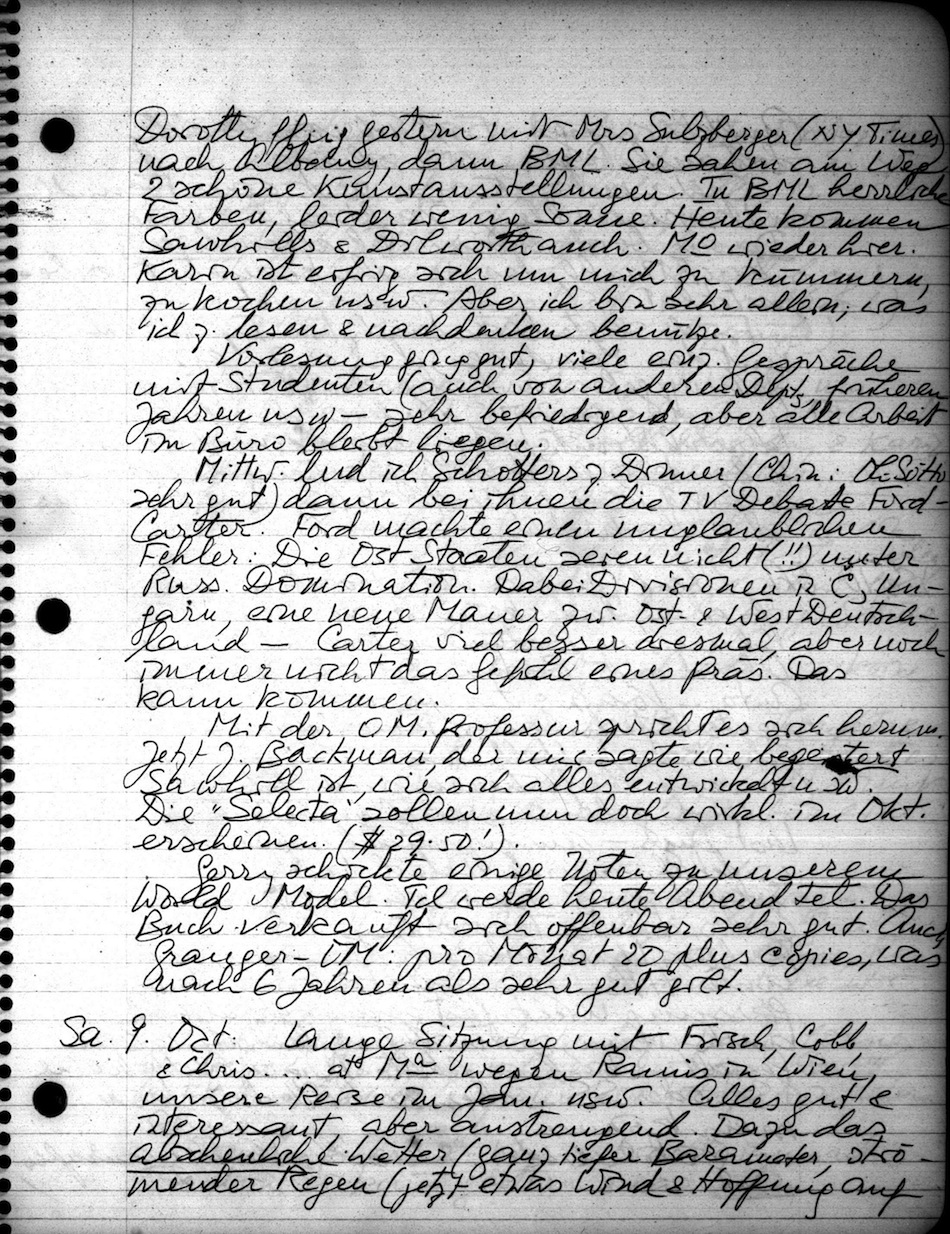 Dorothy ging gestern mit Mrs Sulzberger (NY Times)
nach Albany, dann BML. Sie sahen am Weg
2 schöne Kunstausstellungen. In BML herrlich
Farben, leider wenig Sonne. Heute kommen
Sawhills & Dilworth auch. Mo wieder hier.
Karin ist eifrig sich um mich zu kümmern,
zu kochen usw. Aber ich bin sehr allein, was
ich z. lesen & nachdenken benütze.
Vorlesung ging gut, viele einz. Gespräche
mit Studenten (auch von anderen Dept, früheren
Jahren usw — sehr befriedigend, aber alle Arbeit
im Büro bleibt liegen.
Mittw. lud ich Schotters z. Dinner (Chin:
sehr gut) dann bei ihnen die TV Debate Ford-
Carter. Ford machte einen unglaublichen
Fehler: Die Ost-Staaten seien nicht (!!) unter
Russ. Domination. Dabei Divisionen in C, Un-
garn, eine neue Mauer zw. Ost- & WestDeutsch-
land — Carter viel besser diesmal, aber noch
immer nicht das Gefühl eines Präs. Das
kann kommen.
Mit der O.M. Professur spricht es sich herum.
Jetzt J. Backman, der mir sagte wie begeistert
Sawhill ist, wie sich alles entwickelt usw.
Die "Selecta" sollen nun doch wirkl. im Okt.
erscheinen. ($ 29.50!).
Gerry schickte einige Noten zu unserem
World Model. Ich werde heute Abend tel. Das
Buch verkauft sich offenbar sehr gut. Auch
Granger-OM: pro Monat 20 plus copies, was
nach 6 Jahren als sehr gut gilt.
Sa. 9. Okt. Lange Sitzung mit Frisch, Cobb
& Chris.... at Ma wegen Ramis in Wien,
unsere Reise im Jan. usw. Alles gut &
interessant, aber anstrengend. Dazu das
abscheuliche Wetter (ganz tiefer Barometer, strö-
mender Regen (jetzt etwas Wind & Hoffnung auf